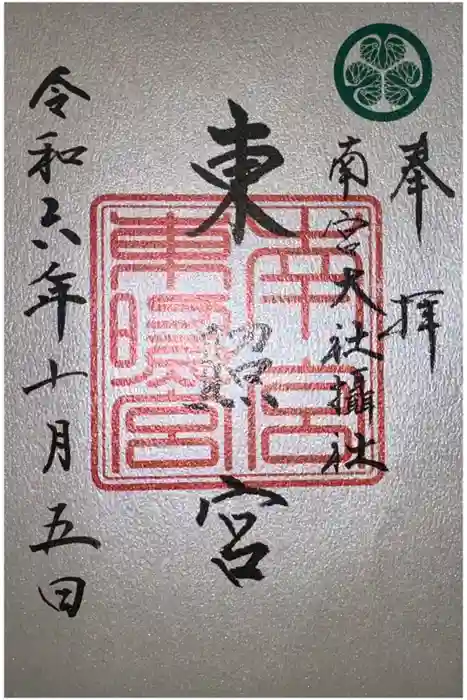 奉拝
南宮大社攝社
東照宮
令和六年十月五日
南宮
東照宮